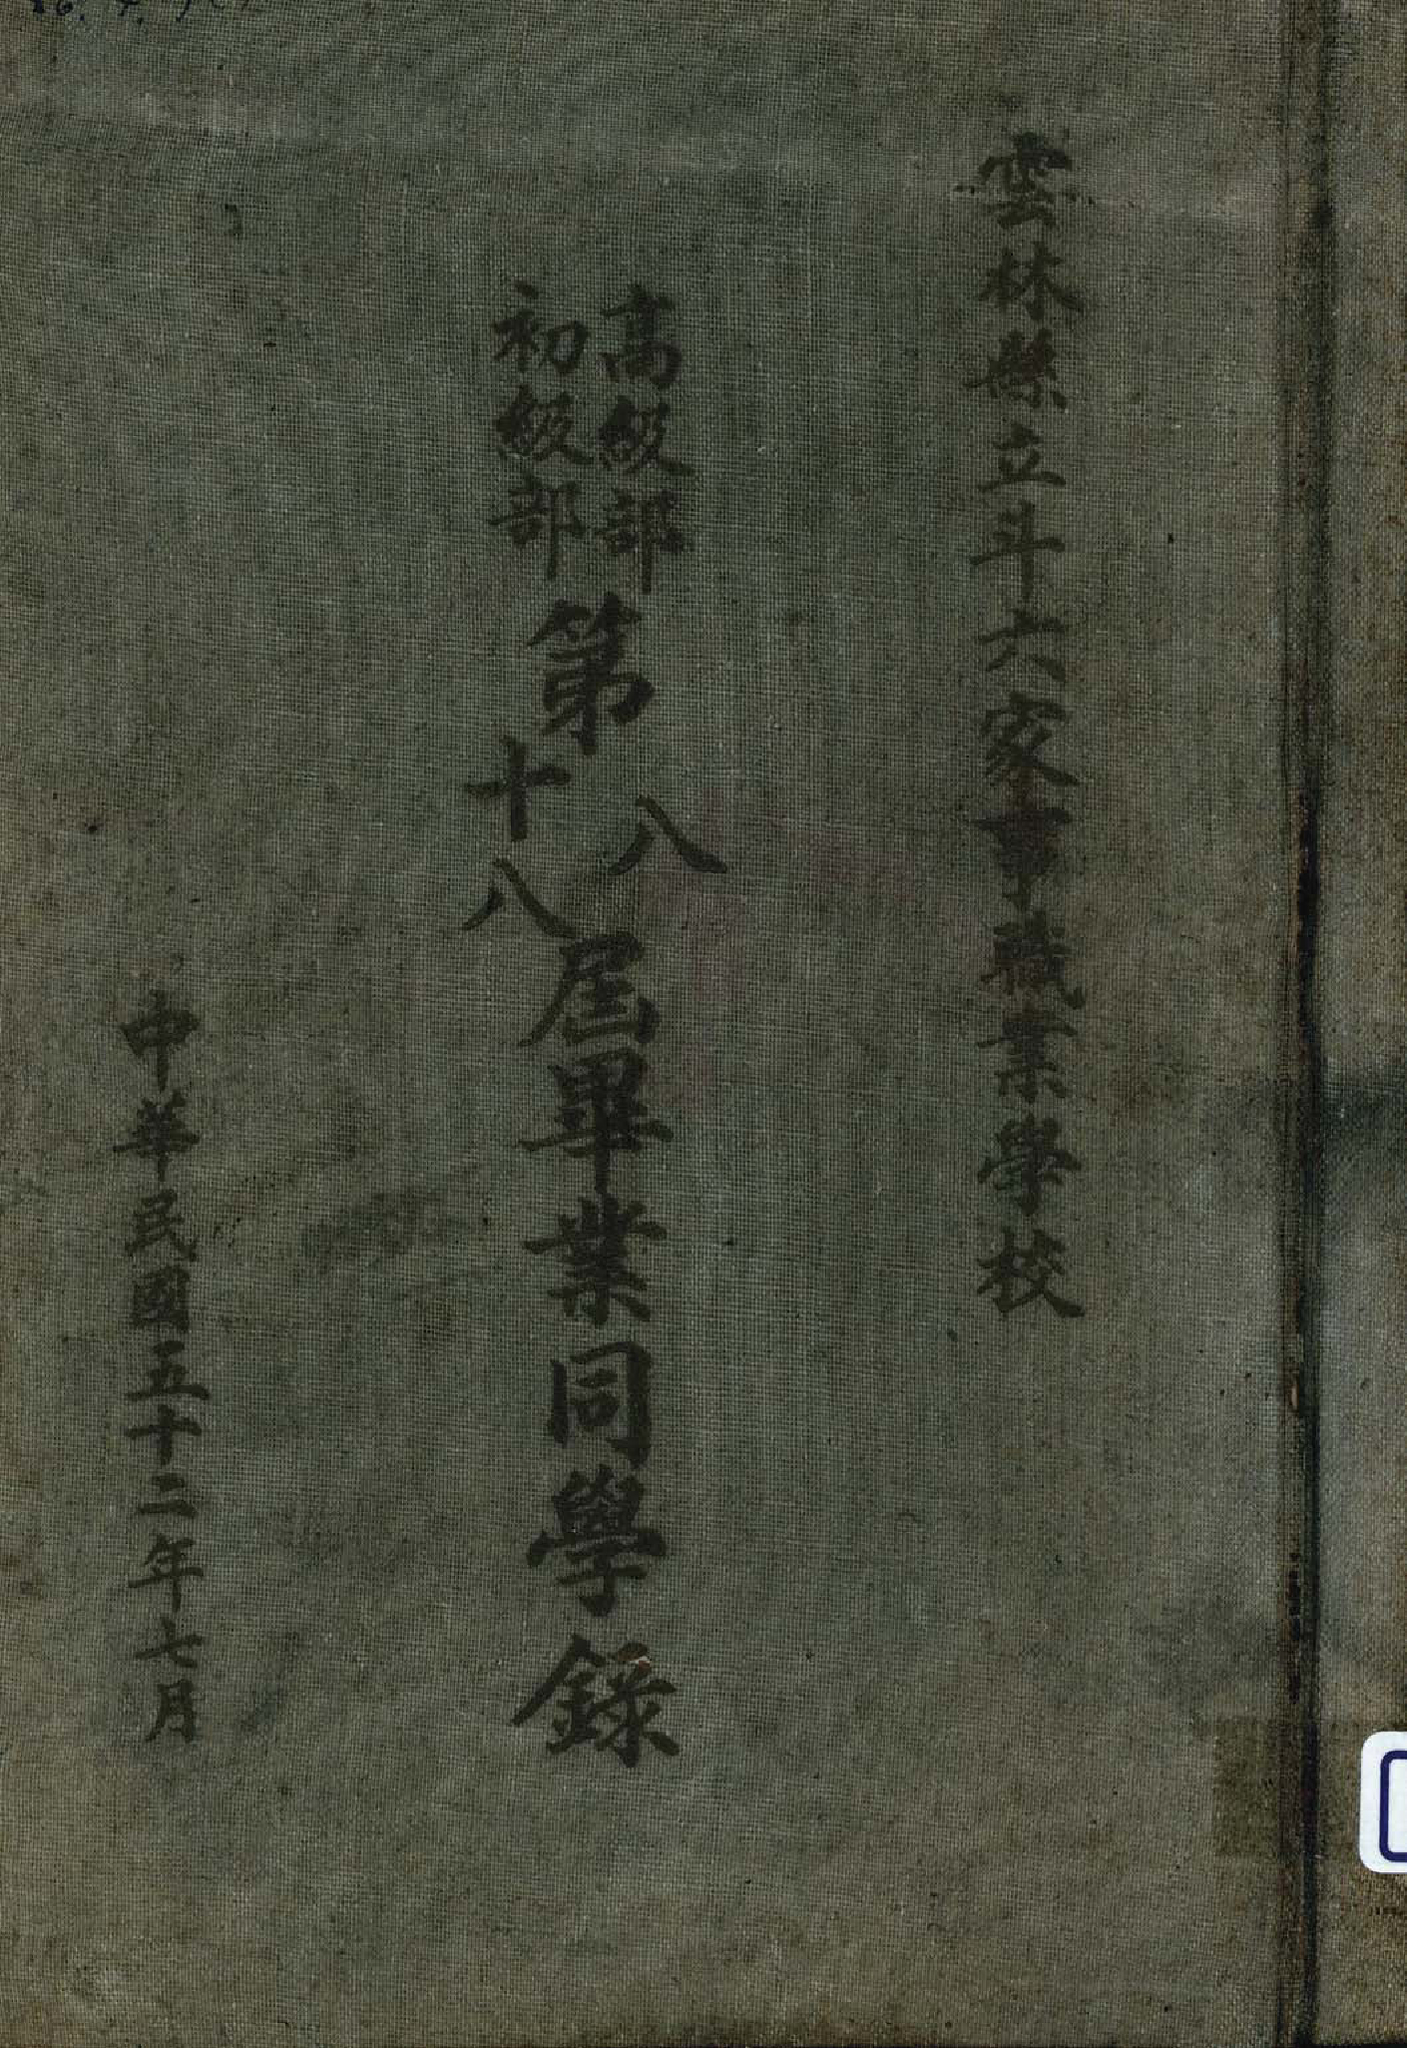 雲林縣立斗六家事職業學校
高級部
初級部
第
八
十八
屆畢業同學錄
中華民國五十二年七月